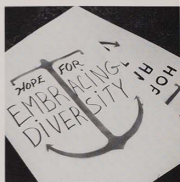 HOPE FOR
EMBRACING
DIVERSITY
HOF